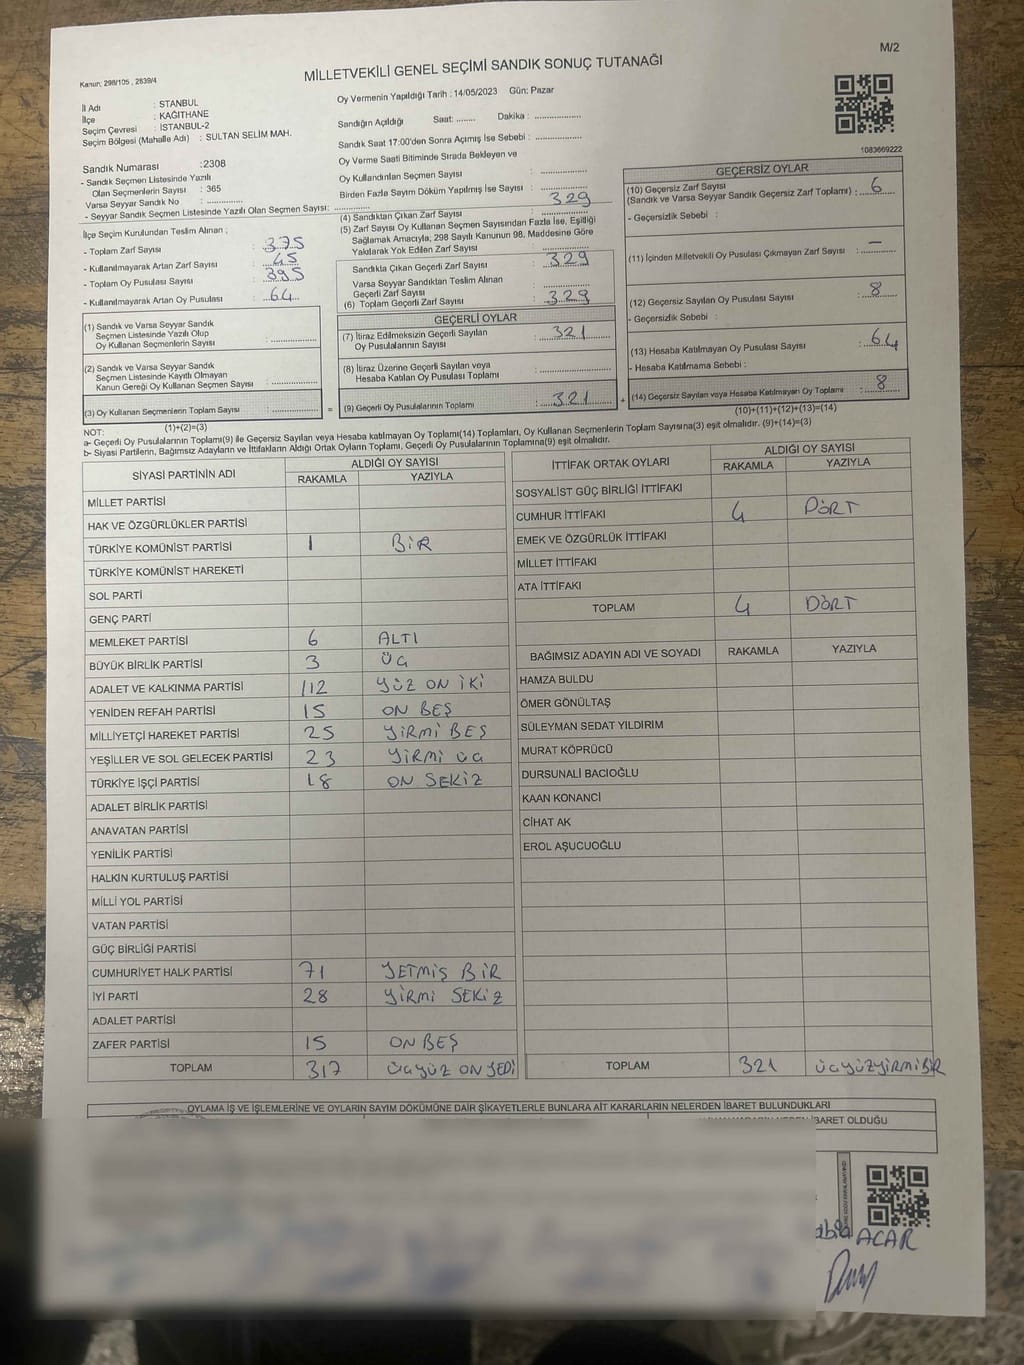 M/2
Kanun: 298/105 , 2839/4
MİLLETVEKİLİ GENEL SEÇİMİ SANDIK SONUÇ TUTANAĞI
İl Adı : STANBUL
İlçe : KAĞITHANE
Seçim Çevresi : İSTANBUL-2
Seçim Bölgesi (Mahalle Adı) : SULTAN SELİM MAH.
Sandık Numarası :2308
- Sandık Seçmen Listesinde Yazılı
Olan Seçmenlerin Sayısı : 365
Varsa Seyyar Sandık No : ..............
- Seyyar Sandık Seçmen Listesinde Yazılı Olan Seçmen Sayısı: ..............
İlçe Seçim Kurulundan Teslim Alınan ;
- Toplam Zarf Sayısı : 375
- Kullanılmayarak Artan Zarf Sayısı : 45
- Toplam Oy Pusulası Sayısı : 395
- Kullanılmayarak Artan Oy Pusulası : 64
(1) Sandık ve Varsa Seyyar Sandık
Seçmen Listesinde Yazılı Olup
Oy Kullanan Seçmenlerin Sayısı : ..............
(2) Sandık ve Varsa Seyyar Sandık
Seçmen Listesinde Kayıtlı Olmayan
Kanun Gereği Oy Kullanan Seçmen Sayısı : ..............
(3) Oy Kullanan Seçmenlerin Toplam Sayısı : ..............
(1)+(2)=(3)
Oy Vermenin Yapıldığı Tarih : 14/05/2023 Gün: Pazar
Sandığın Açıldığı Saat: ........ Dakika : ..............
Sandık Saat 17:00'den Sonra Açımış İse Sebebi : ..............
Oy Verme Saati Bitiminde Sırada Bekleyen ve
Oy Kullandırılan Seçmen Sayısı : ..............
Birden Fazla Sayım Döküm Yapılmış İse Sayısı : ..............
(4) Sandıktan Çıkan Zarf Sayısı : 329
(5) Zarf Sayısı Oy Kullanan Seçmen Sayısından Fazla İse, Eşitliği
Sağlamak Amacıyla; 298 Sayılı Kanunun 98, Maddesine Göre
Yakılarak Yok Edilen Zarf Sayısı : ..............
Sandıkla Çıkan Geçerli Zarf Sayısı : 329
Varsa Seyyar Sandıktan Teslim Alınan
Geçerli Zarf Sayısı : ..............
(6) Toplam Geçerli Zarf Sayısı : 329
GEÇERLİ OYLAR
(7) İtiraz Edilmeksizin Geçerli Sayılan
Oy Pusulalarının Sayısı : 321
(8) İtiraz Üzerine Geçerli Sayılan veya
Hesaba Katılan Oy Pusulası Toplamı : ..............
= (9) Geçerli Oy Pusulalarının Toplamı : 321 +
1083669222
GEÇERSİZ OYLAR
(10) Geçersiz Zarf Sayısı
(Sandık ve Varsa Seyyar Sandık Geçersiz Zarf Toplamı) : 6
- Geçersizlik Sebebi :
(11) İçinden Milletvekili Oy Pusulası Çıkmayan Zarf Sayısı : —
(12) Geçersiz Sayılan Oy Pusulası Sayısı : 8
- Geçersizlik Sebebi :
(13) Hesaba Katılmayan Oy Pusulası Sayısı : 64
- Hesaba Katılmama Sebebi :
(14) Geçersiz Sayılan veya Hesaba Katılmayan Oy Toplamı : 8
(10)+(11)+(12)+(13)=(14)
NOT:
a- Geçerli Oy Pusulalarının Toplamı(9) ile Geçersiz Sayılan veya Hesaba katılmayan Oy Toplamı(14) Toplamları, Oy Kullanan Seçmenlerin Toplam Sayısına(3) eşit olmalıdır. (9)+(14)=(3)
b- Siyasi Partilerin, Bağımsız Adayların ve İttifakların Aldığı Ortak Oyların Toplamı, Geçerli Oy Pusulalarının Toplamına(9) eşit olmalıdır.
SİYASİ PARTİNİN ADI ALDIĞI OY SAYISI
RAKAMLA YAZIYLA
MİLLET PARTİSİ
HAK VE ÖZGÜRLÜKLER PARTİSİ
TÜRKİYE KOMÜNİST PARTİSİ 1 BİR
TÜRKİYE KOMÜNİST HAREKETİ
SOL PARTİ
GENÇ PARTİ
MEMLEKET PARTİSİ 6 ALTI
BÜYÜK BİRLİK PARTİSİ 3 ÜÇ
ADALET VE KALKINMA PARTİSİ 112 YÜZ ON İKİ
YENİDEN REFAH PARTİSİ 15 ON BEŞ
MİLLİYETÇİ HAREKET PARTİSİ 25 YİRMİ BEŞ
YEŞİLLER VE SOL GELECEK PARTİSİ 23 YİRMİ ÜÇ
TÜRKİYE İŞÇİ PARTİSİ 18 ON SEKİZ
ADALET BİRLİK PARTİSİ
ANAVATAN PARTİSİ
YENİLİK PARTİSİ
HALKIN KURTULUŞ PARTİSİ
MİLLİ YOL PARTİSİ
VATAN PARTİSİ
GÜÇ BİRLİĞİ PARTİSİ
CUMHURİYET HALK PARTİSİ 71 YETMİŞ BİR
İYİ PARTİ 28 YİRMİ SEKİZ
ADALET PARTİSİ
ZAFER PARTİSİ 15 ON BEŞ
TOPLAM 317 ÜÇYÜZ ON YEDİ
İTTİFAK ORTAK OYLARI ALDIĞI OY SAYISI
RAKAMLA YAZIYLA
SOSYALİST GÜÇ BİRLİĞİ İTTİFAKI
CUMHUR İTTİFAKI 4 DÖRT
EMEK VE ÖZGÜRLÜK İTTİFAKI
MİLLET İTTİFAKI
ATA İTTİFAKI
TOPLAM 4 DÖRT
BAĞIMSIZ ADAYIN ADI VE SOYADI RAKAMLA YAZIYLA
HAMZA BULDU
ÖMER GÖNÜLTAŞ
SÜLEYMAN SEDAT YILDIRIM
MURAT KÖPRÜCÜ
DURSUNALİ BACIOĞLU
KAAN KONANCİ
CİHAT AK
EROL AŞUCUOĞLU
TOPLAM 321 ÜÇYÜZYİRMİBİR
OYLAMA İŞ VE İŞLEMLERİNE VE OYLARIN SAYIM DÖKÜMÜNE DAİR ŞİKAYETLERLE BUNLARA AİT KARARLARIN NELERDEN İBARET BULUNDUKLARI
İBARET OLDUĞU
ACAR